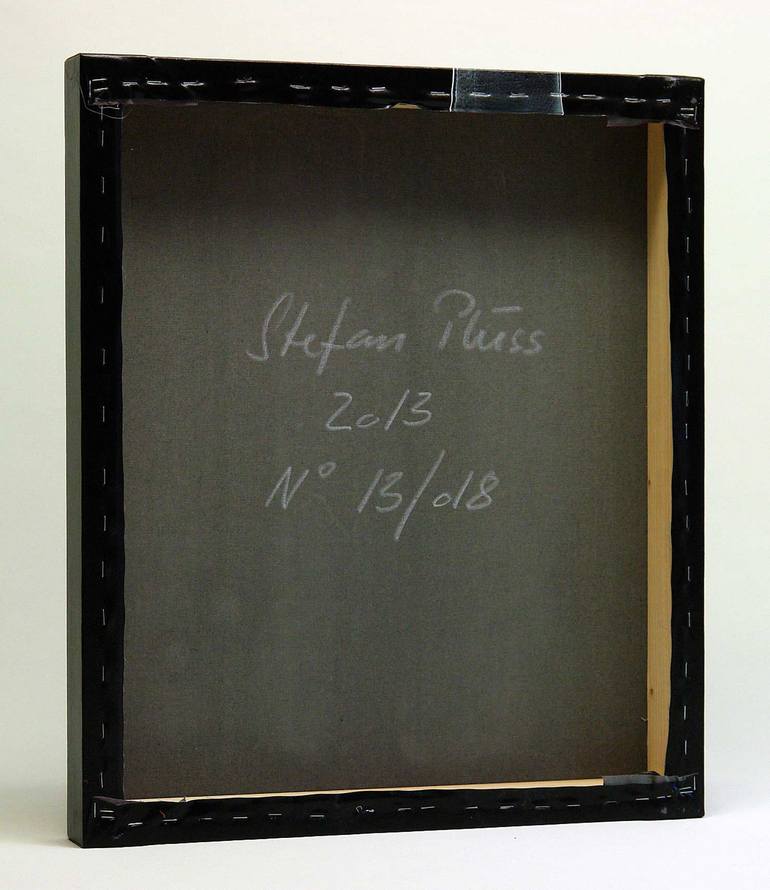 Stefan Plüss
2013
N° 13/018